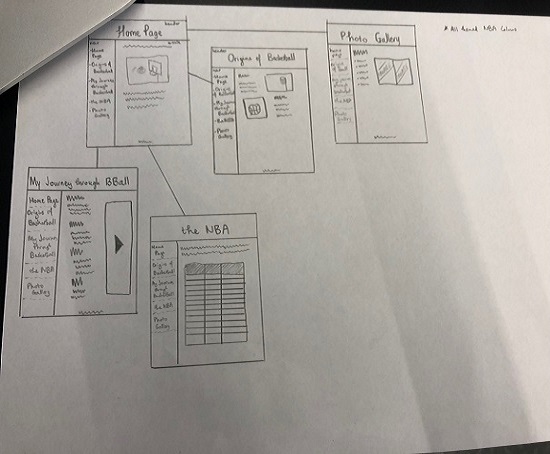 header
Home Page
Home
Page
Origin of
Basketball
My Journey
through
Basketball
the NBA
Photo
Gallery
header
Origins of Basketball
Home
Page
Origin of
Basketball
My Journey
through
Basketball
the NBA
Photo
Gallery
Photo Gallery
Home
page
Origin of
Basketball
My Journey
through
Basketball
the NBA
Photo
Gallery
* All Around NBA Colours
My Journey through BBall
Home Page
Origins of
Basketball
My Journey
Through
Basketball
the NBA
Photo
Gallery
the NBA
Home
Page
Origins of
Basketball
My Journey
through
Basketball
the NBA
Photo
Gallery